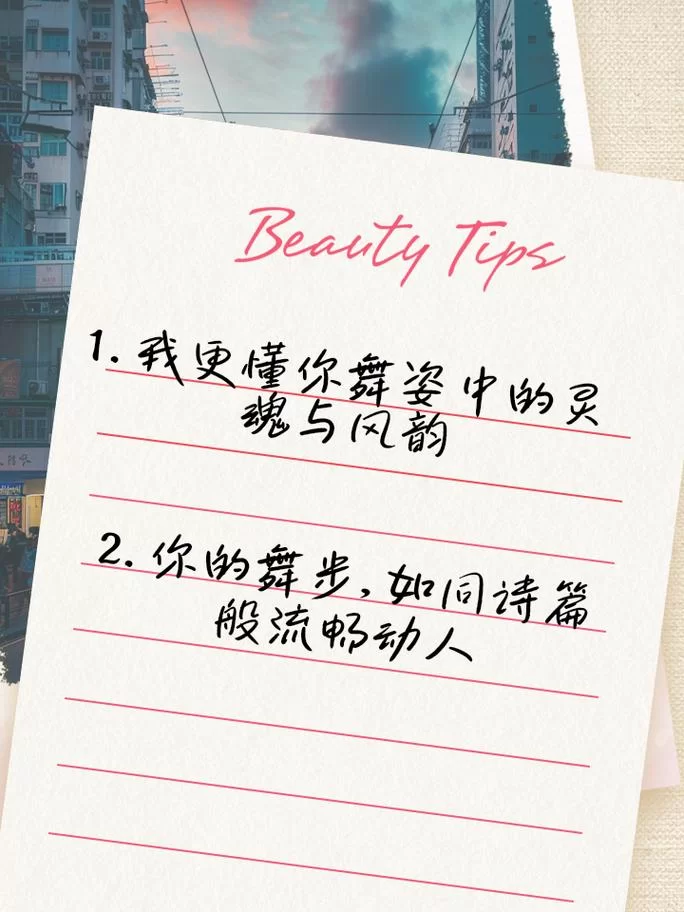 Beauty Tips
1. 我更懂你舞姿中的灵
魂与风韵
2. 你的舞步,如同诗篇
般流畅动人